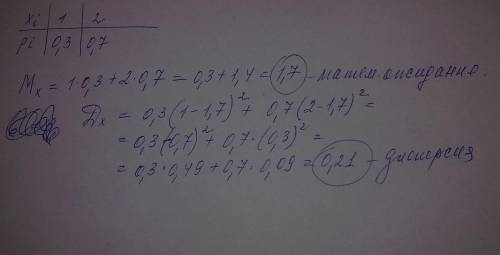 xi | 1 | 2
pi | 0,3 | 0,7
Mx = 1·0,3+2·0,7 = 0,3+1,4 = 1,7 - матем. ожидание.
Dx = 0,3(1-1,7)² + 0,7(2-1,7)² =
= 0,3(-0,7)² + 0,7·(0,3)² =
= 0,3·0,49+0,7·0,09 = 0,21 - дисперсия